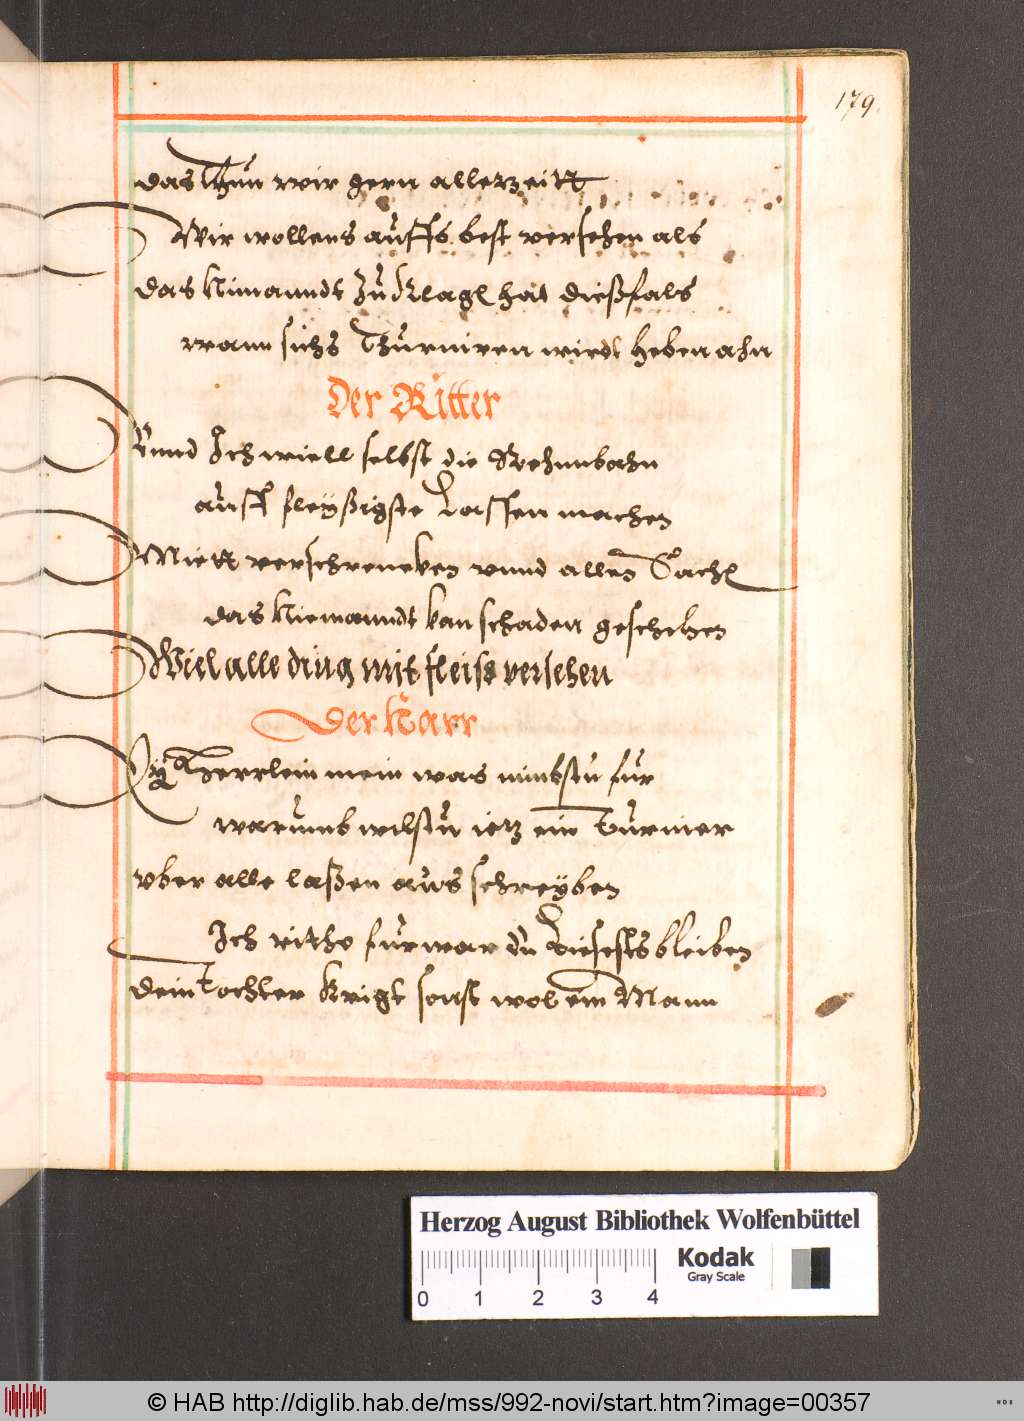 179.
das thun wir gern allerzeitt
Wir wollens auffs best versehen als
das Nimanndt zu klagen hat dießfals
wann sichs Thurniren wirdt heben ahn
Der Ritter
Vnnd Ich wiell selbst die Rehnnbahn
auff fleyßigste Lassen machen
Miett verschrencken vnnd allen Sachen
das Niemanndt kan schaden geschehen
Wiel alle ding mit fleiss versehen
Der Narr
Ey Herrlein mein was nimbstu fur
warumb wilstu ietz ein Turnier
vber alle laßen aus schreyben
Ich rithe furwar du Liesests bleiben
dein tochter krigt sonst wol ein Mann
Herzog August Bibliothek Wolfenbüttel
Kodak
Gray Scale
0 1 2 3 4
© HAB http://diglib.hab.de/mss/992-novi/start.htm?image=00357